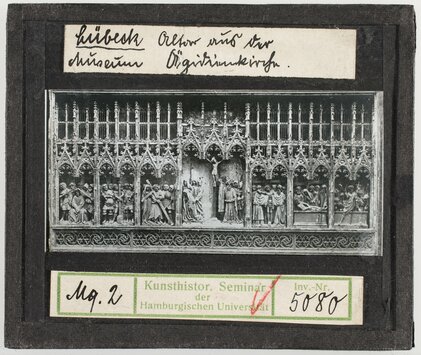 Lübeck Altar aus der
Museum Ägidienkirche.
Mg. 2
Kunsthistor. Seminar
der
Hamburgischen Universität
Inv.-Nr.
5080